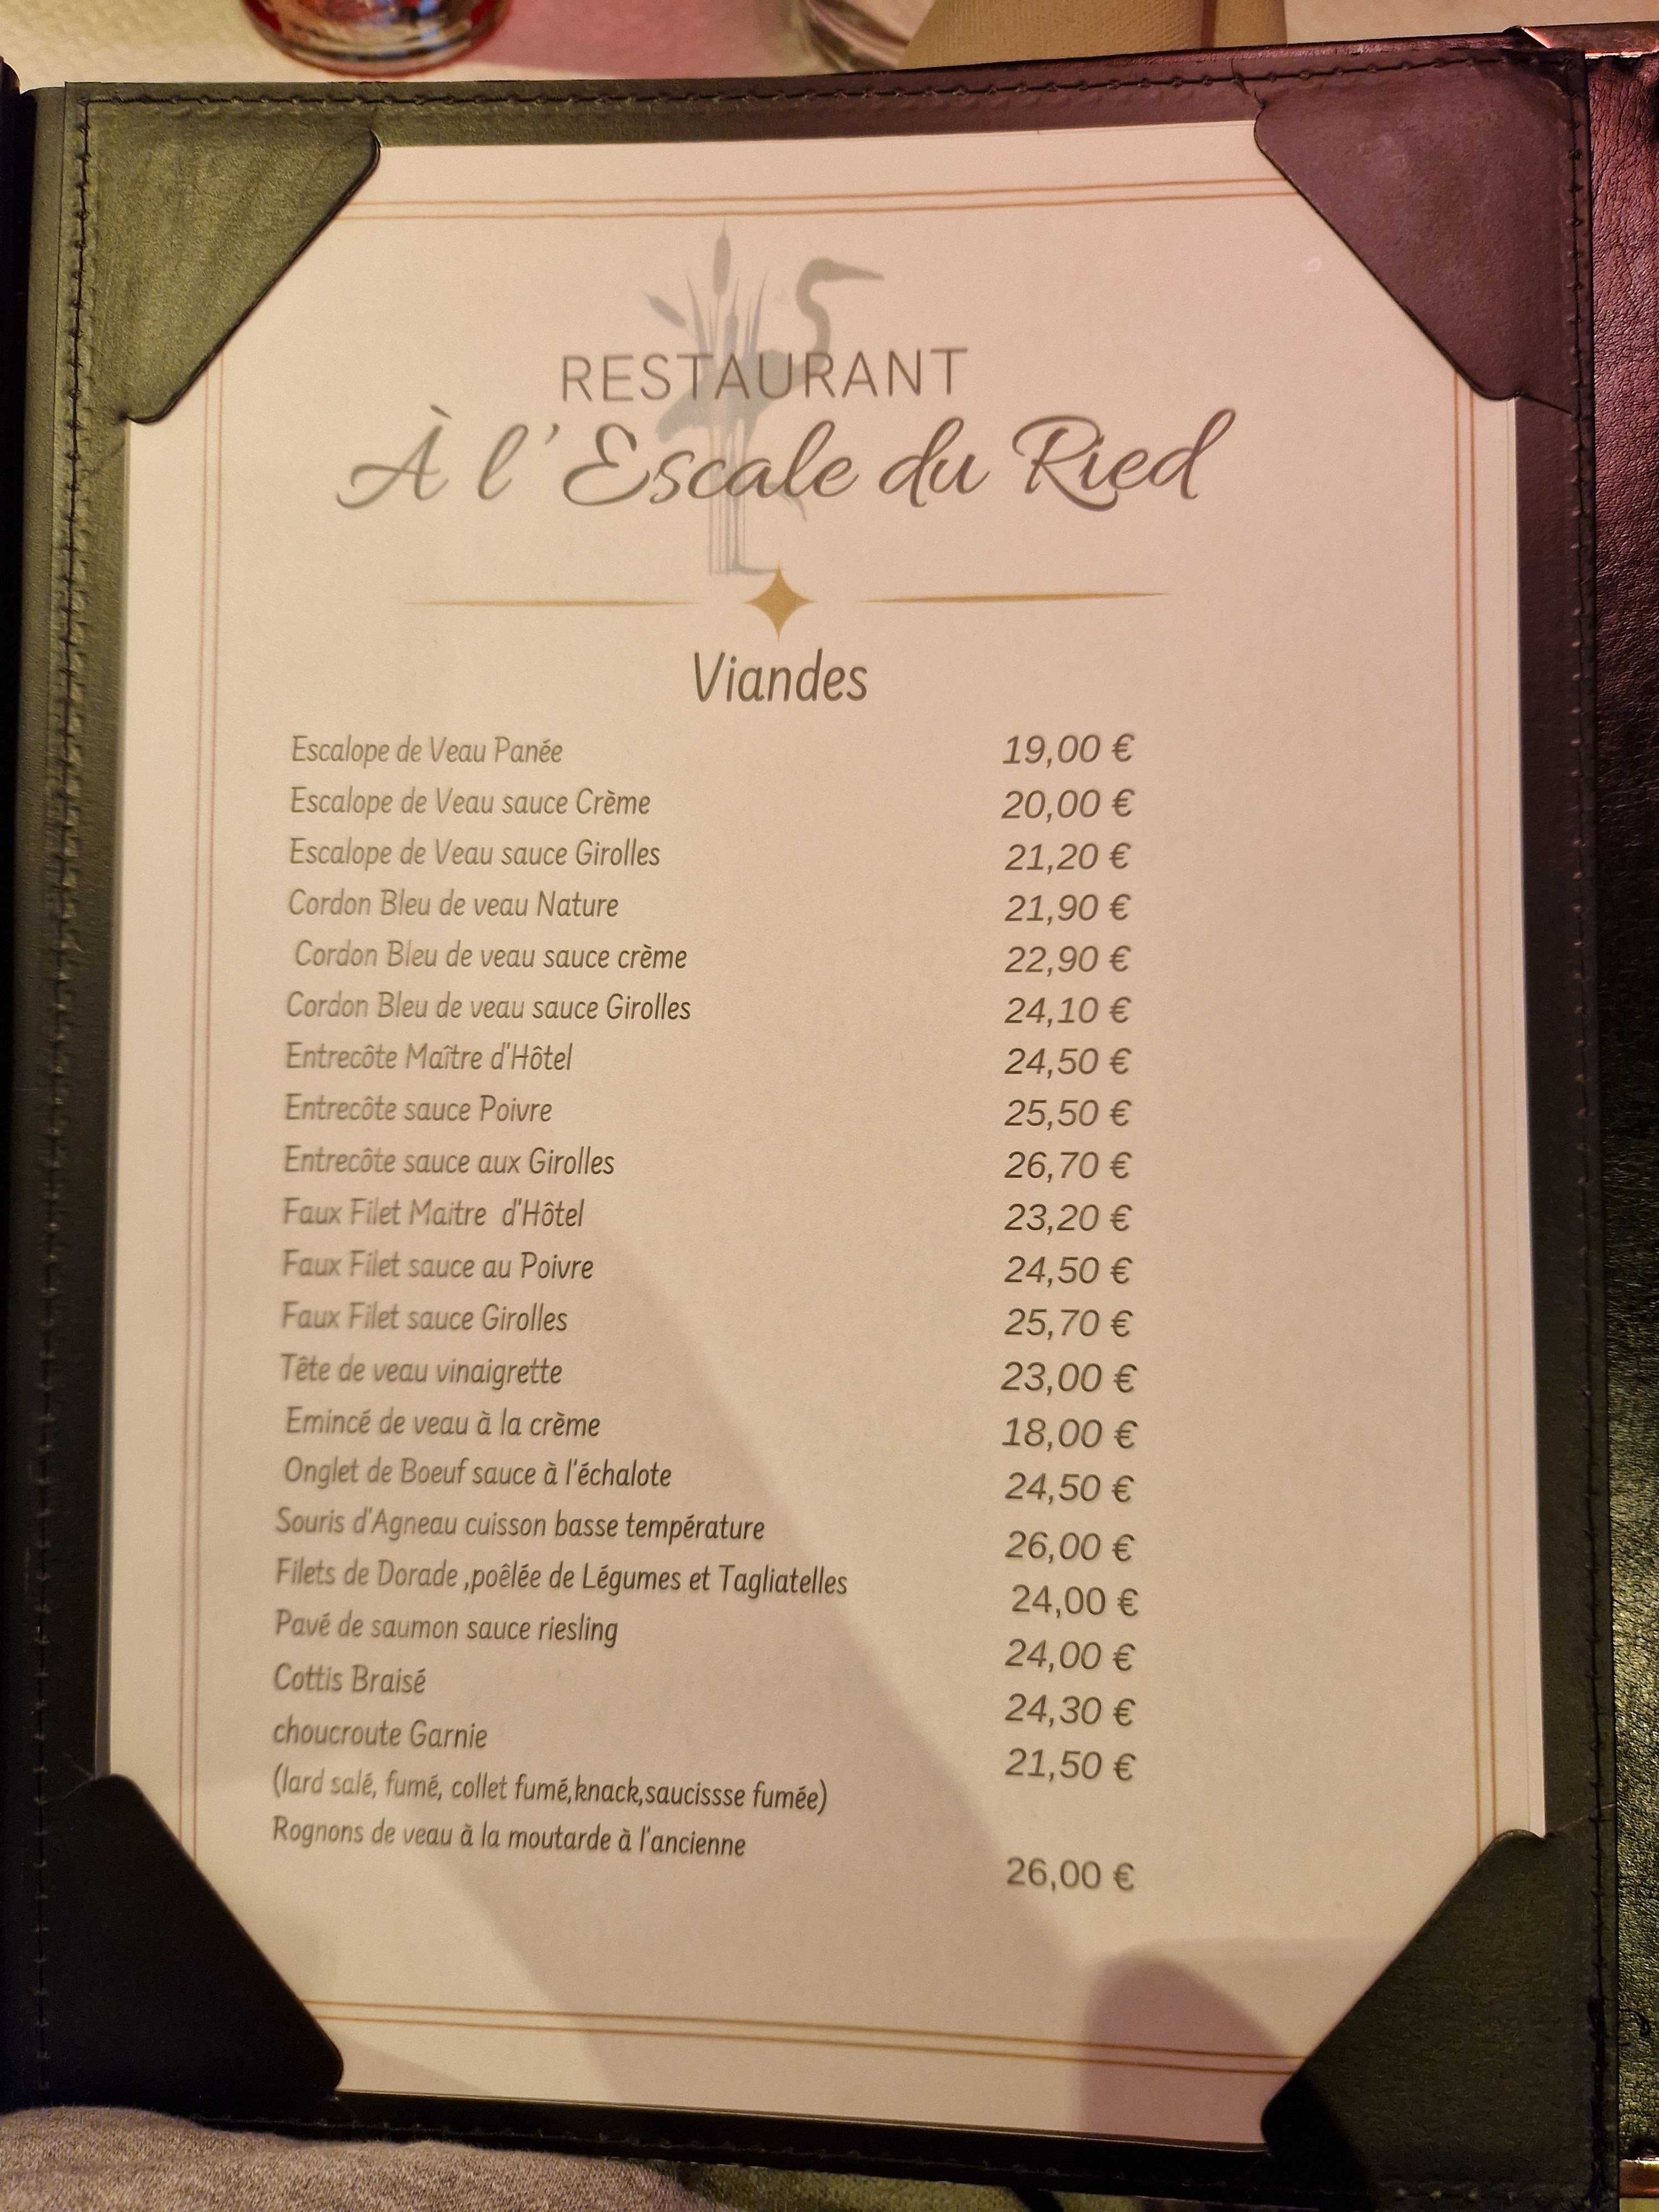 RESTAURANT
À l'Escale du Ried
Viandes
Escalope de Veau Panée 19,00 €
Escalope de Veau sauce Crème 20,00 €
Escalope de Veau sauce Girolles 21,20 €
Cordon Bleu de veau Nature 21,90 €
Cordon Bleu de veau sauce crème 22,90 €
Cordon Bleu de veau sauce Girolles 24,10 €
Entrecôte Maître d'Hôtel 24,50 €
Entrecôte sauce Poivre 25,50 €
Entrecôte sauce aux Girolles 26,70 €
Faux Filet Maitre d'Hôtel 23,20 €
Faux Filet sauce au Poivre 24,50 €
Faux Filet sauce Girolles 25,70 €
Tête de veau vinaigrette 23,00 €
Emincé de veau à la crème 18,00 €
Onglet de Boeuf sauce à l'échalote 24,50 €
Souris d'Agneau cuisson basse température 26,00 €
Filets de Dorade ,poêlée de Légumes et Tagliatelles 24,00 €
Pavé de saumon sauce riesling 24,00 €
Cottis Braisé 24,30 €
choucroute Garnie 21,50 €
(lard salé, fumé, collet fumé,knack,saucissse fumée)
Rognons de veau à la moutarde à l'ancienne 26,00 €